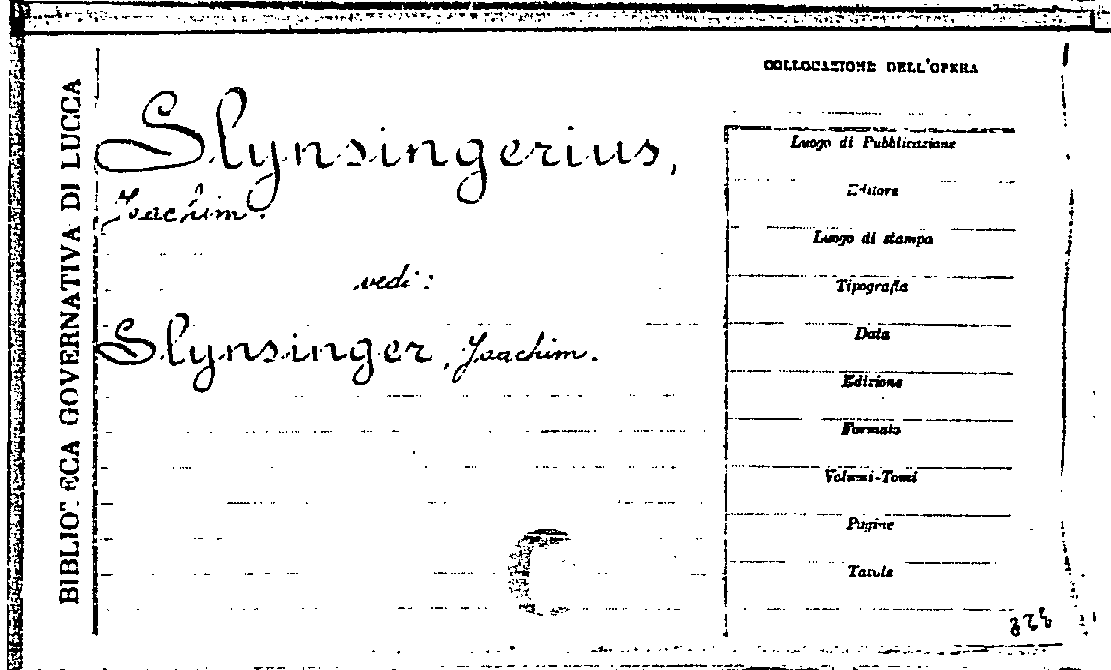 BIBLIOTECA GOVERNATIVA DI LUCCA
Slynsingerius,
Joachim.
vedi:
Slynsinger, Joachim.
COLLOCAZIONE DELL'OPERA
Luogo di Pubblicazione
Editore
Luogo di stampa
Tipografia
Data
Edizione
Formato
Volumi-Tomi
Pagine
Tavole